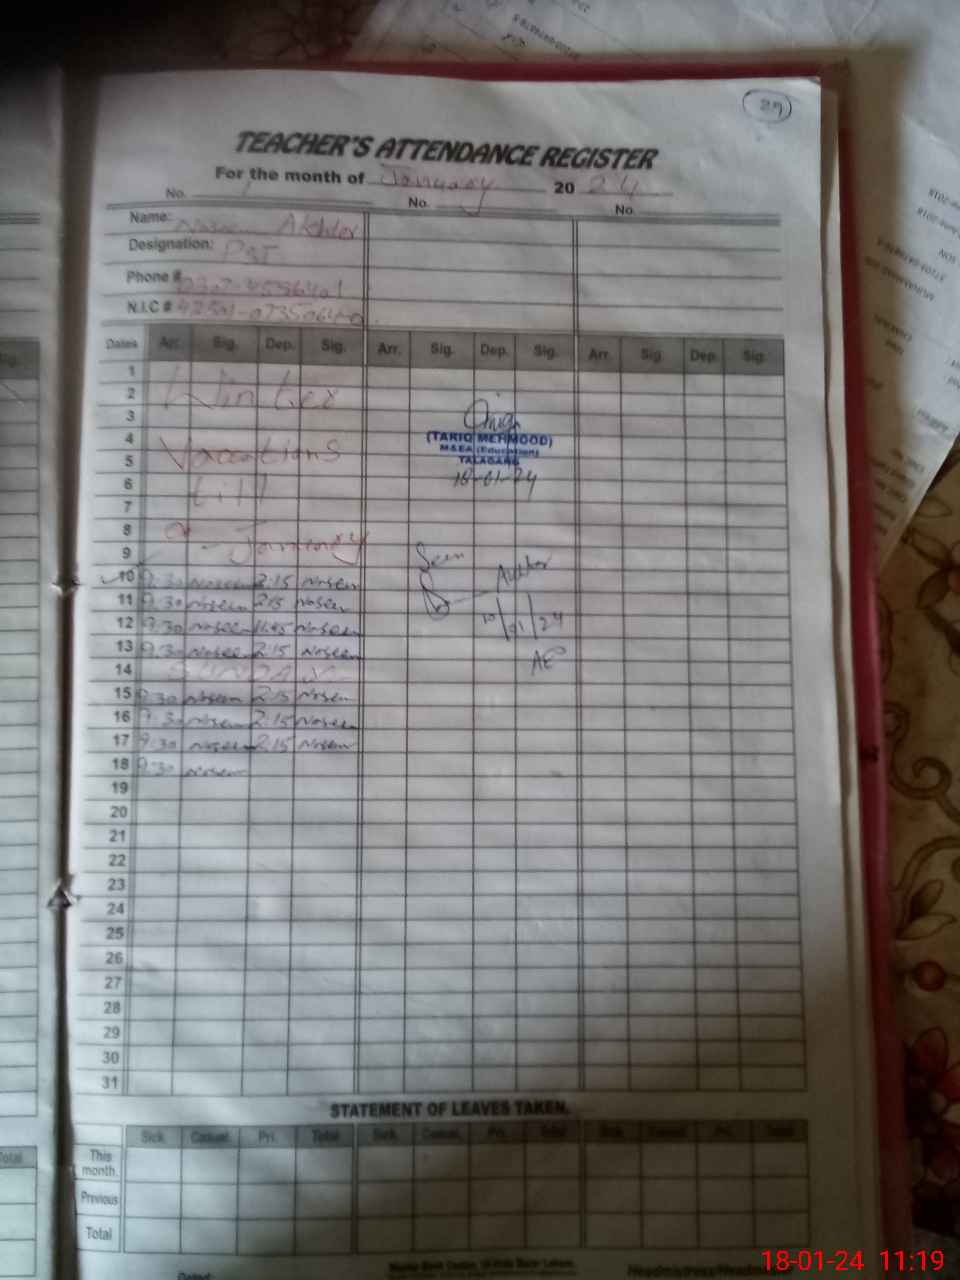 29
TEACHER'S ATTENDANCE REGISTER
For the month of January 20 24
No. 1 No. No.
Name: Naseem Akhter
Designation: PST
Phone #
N.I.C #
Dates Arr. Sig. Dep. Sig. Arr. Sig. Dep. Sig. Arr. Sig. Dep. Sig.
1
2 Winter
3
4 (TARIQ MEHMOOD)
5 Vacations M&EA (Education)
TALAGANG
6 till 18-01-24
7
8
9 9 - January Seen
10 9:30 Naseem 2:15 Naseem Akhter
11 9:30 Naseem 2:15 Naseem
12 9:30 Naseem 11:45 Naseem 10/01/24
13 9:30 Naseem 2:15 Naseem
14 SUNDAY
15 9:30 Naseem 2:15 Naseem
16 9:30 Naseem 2:15 Naseem
17 9:30 Naseem 2:15 Naseem
18 9:30 Naseem
19
20
21
22
23
24
25
26
27
28
29
30
31
STATEMENT OF LEAVES TAKEN.
Sick. Casual. Pri. Total Sick. Casual. Pri. Total Sick. Casual. Pri. Total
This month.
Previous
Total
Dated
Headmistress/Headmaster
18-01-24 11:19